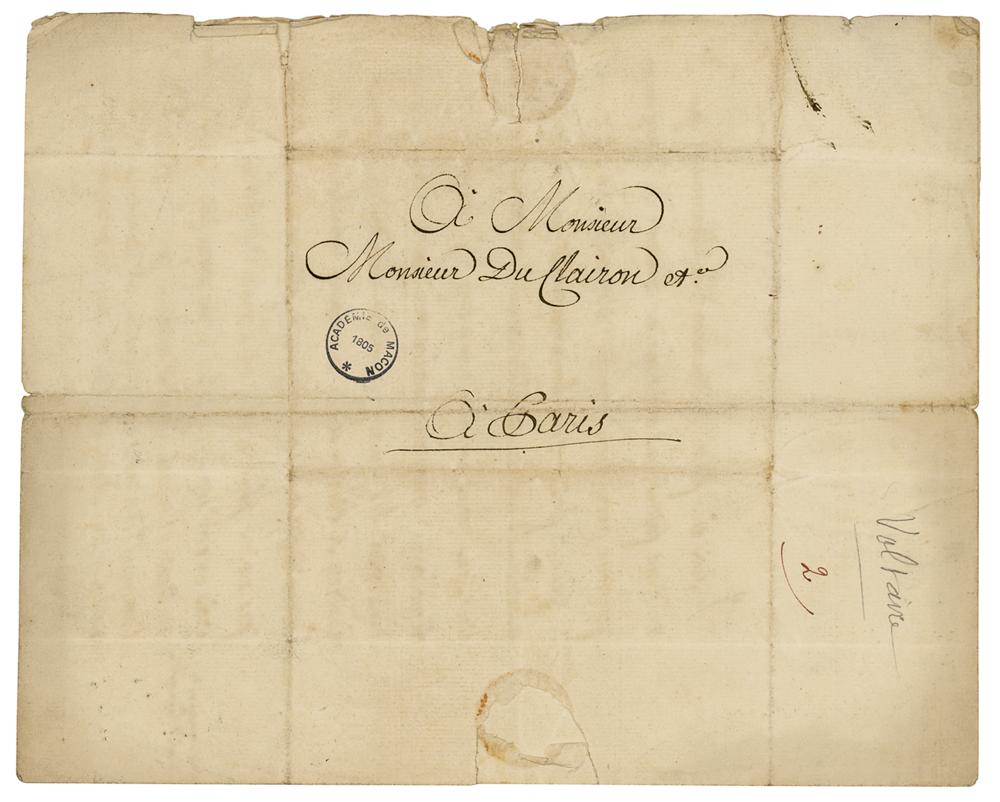 À Monsieur
Monsieur Du Clairon etc.ª
ACADEMIE de MACON *
1805
À Paris
Voltaire
2